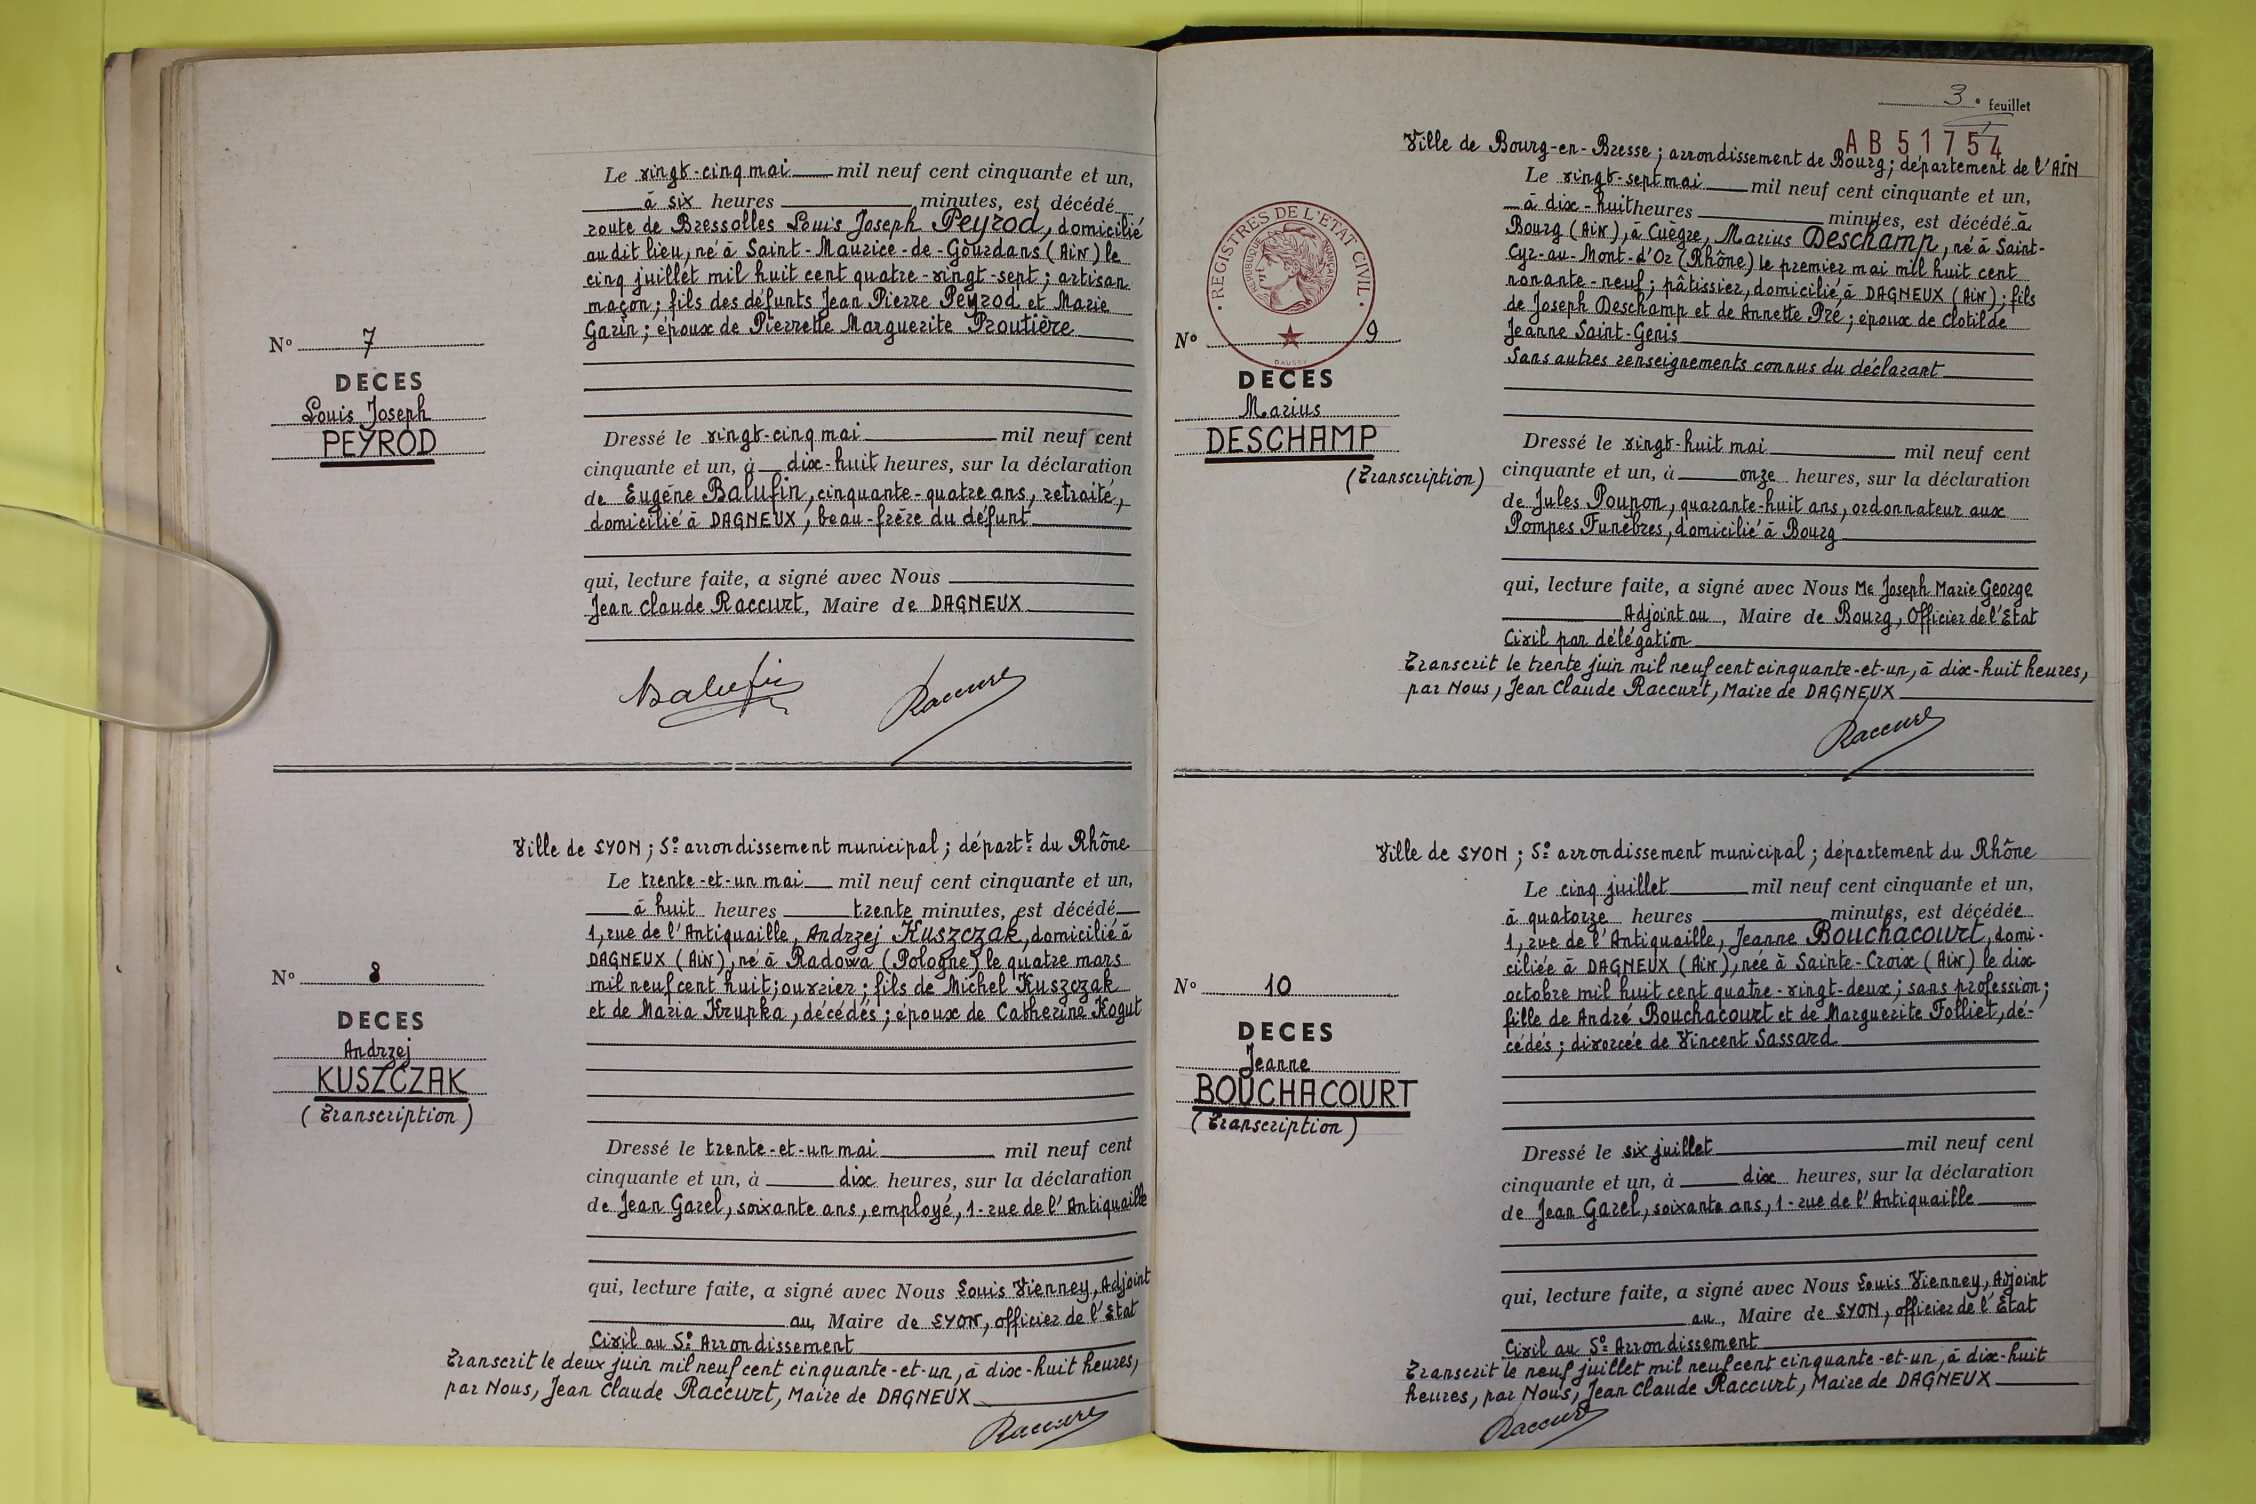 Le vingt-cinq mai mil neuf cent cinquante et un,
à six heures minutes, est décédé
route de Bressolles Louis Joseph Peyrod, domicilié
au dit lieu, né à Saint-Maurice-de-Gourdans (AiN) le
cinq juillet mil huit cent quatre-vingt-sept; artisan
maçon; fils des défunts Jean Pierre Peyrod et Marie
Garin; époux de Pierrette Marguerite Proutière
N° 7
DECES
Louis Joseph
PEYROD
Dressé le vingt-cinq mai mil neuf cent
cinquante et un, à dix-huit heures, sur la déclaration
de Eugène Balufin, cinquante-quatre ans, retraité,
domicilié à DAGNEUX, beau-frère du défunt
qui, lecture faite, a signé avec Nous
Jean Claude Raccurt, Maire de DAGNEUX
Balufin Raccurt
Ville de LYON; 5e arrondissement municipal; départt du Rhône
Le trente-et-un mai mil neuf cent cinquante et un,
à huit heures trente minutes, est décédé
1, rue de l'Antiquaille, Andrzej Kuszczak, domicilié à
DAGNEUX (AiN), né à Radowa (Pologne) le quatre mars
mil neuf cent huit; ouvrier; fils de Michel Kuszczak
et de Maria Krupka, décédés; époux de Catherine Kogut
N° 8
DECES
Andrzej
KUSZCZAK
(Transcription)
Dressé le trente-et-un mai mil neuf cent
cinquante et un, à dix heures, sur la déclaration
de Jean Garel, soixante ans, employé, 1-rue de l'Antiquaille
qui, lecture faite, a signé avec Nous Louis Vienney, Adjoint
au, Maire de LYON, officier de l'Etat
Civil au 5e Arrondissement
Transcrit le deux juin mil neuf cent cinquante-et-un, à dix-huit heures,
par Nous, Jean Claude Raccurt, Maire de DAGNEUX
Raccurt
3e feuillet
AB51754
Ville de Bourg-en-Bresse; arrondissement de Bourg; département de l'AiN
Le vingt-sept mai mil neuf cent cinquante et un,
à dix-huit heures minutes, est décédé à
Bourg (AiN), à Cuègre, Marius Deschamp, né à Saint-
Cyr-au-Mont-d'Or (Rhône) le premier mai mil huit cent
nonante-neuf; pâtissier, domicilié à DAGNEUX (AiN); fils
de Joseph Deschamp et de Annette Pré; époux de Clotilde
Jeanne Saint-Genis
Sans autres renseignements connus du déclarant
REGISTRES DE L'ETAT CIVIL
REPUBLIQUE FRANÇAISE
DAUSSY
N° 9
DECES
Marius
DESCHAMP
(Transcription)
Dressé le vingt-huit mai mil neuf cent
cinquante et un, à onze heures, sur la déclaration
de Jules Poupon, quarante-huit ans, ordonnateur aux
Pompes Funèbres, domicilié à Bourg
qui, lecture faite, a signé avec Nous Me Joseph Marie George
Adjoint au, Maire de Bourg, Officier de l'Etat
Civil par délégation
Transcrit le trente juin mil neuf cent cinquante-et-un, à dix-huit heures,
par Nous, Jean Claude Raccurt, Maire de DAGNEUX
Raccurt
Ville de LYON; 5e arrondissement municipal; département du Rhône
Le cinq juillet mil neuf cent cinquante et un,
à quatorze heures minutes, est décédée
1, rue de l'Antiquaille, Jeanne Bouchacourt, domi-
ciliée à DAGNEUX (AiN), née à Sainte-Croix (AiN) le dix
octobre mil huit cent quatre-vingt-deux; sans profession;
fille de André Bouchacourt et de Marguerite Folliet, dé-
cédés; divorcée de Vincent Sassard
N° 10
DECES
Jeanne
BOUCHACOURT
(Transcription)
Dressé le six juillet mil neuf cent
cinquante et un, à dix heures, sur la déclaration
de Jean Garel, soixante ans, 1-rue de l'Antiquaille
qui, lecture faite, a signé avec Nous Louis Vienney, Adjoint
au, Maire de LYON, officier de l'Etat
Civil au 5e Arrondissement
Transcrit le neuf juillet mil neuf cent cinquante-et-un, à dix-huit
heures, par Nous, Jean Claude Raccurt, Maire de DAGNEUX
Raccurt